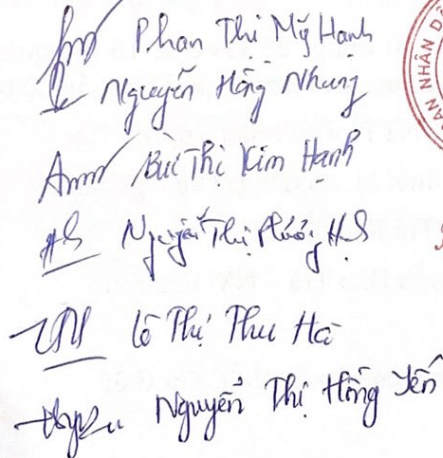 Phan Thị Mỹ Hạnh
Nguyễn Hồng Nhung
Bùi Thị Kim Hạnh
Nguyễn Thị
Lê Thị Thu Hà
Nguyễn Thị Hồng Yến
AN NHÂN D